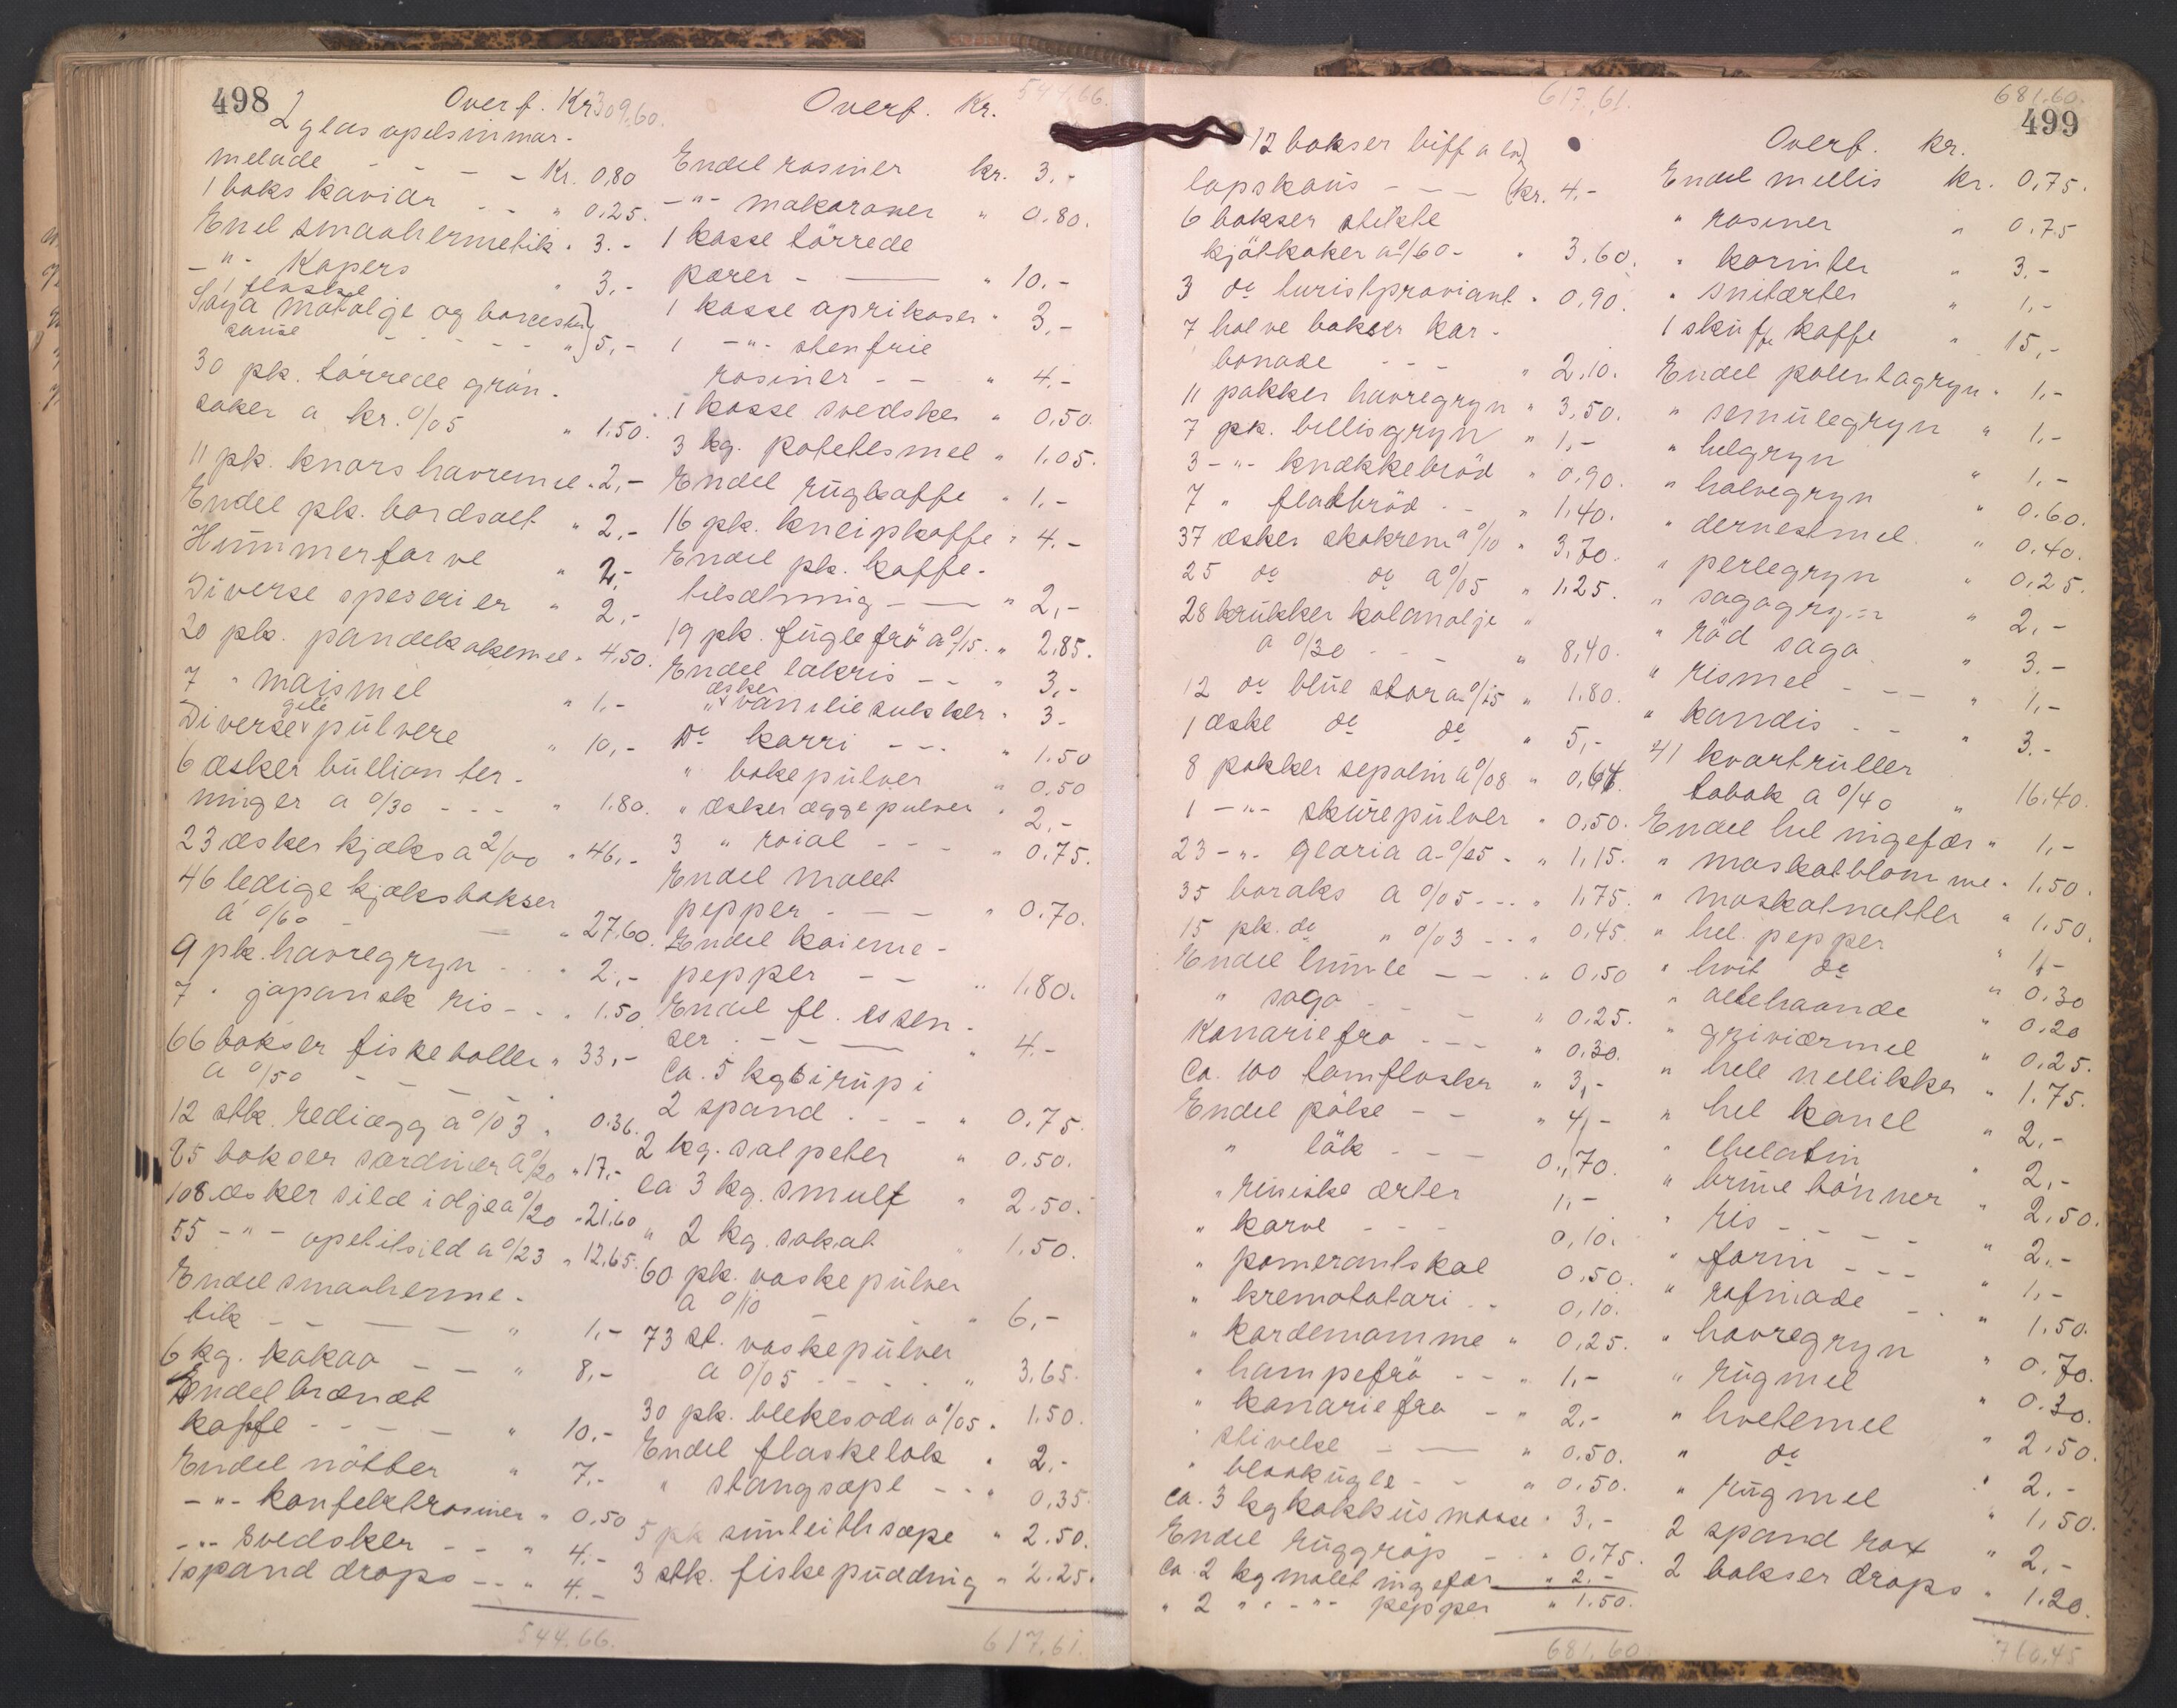 498
Overf. Kr 309.60.
2 glas apelsinmar-
melade - - - Kr. 0,80
1 boks kaviar - - " 0.25.
Endel smaahermetik " 3.-
-"- Kapers " 3,-
1 flaske
Soya matolje og worcester
sause - - - - - " 5,-
30 pk. törrede grön-
saker a kr. 0/05 " 1.50.
11 pk. knors havremel " 2,-
Endel pk. bordsalt " 2,-
Hummerfarve " 2,-
Diverse speserier " 2,-
20 pk. pandekakemel " 4,50.
7 " maismel " 1,-
gele
Diverse pulvere " 10,-
6 æsker bullion ter-
ninger a 0/30 - - - " 1,80.
23 æsker kjæks a 2/00 " 46,-
46 ledige kjæksbokser
a 0/60 - - " 27,60.
9 pk. havregryn - - " 2,-
7 " japansk ris - - " 1.50
66 bokser fiskeboller " 33,-
a 0/50 - - -
12 stk. rediægg a 0/03 " 0.36.
85 bokser sardiner a 0/20 " 17,-
108 æsker sild i olje a 0/20 " 21,60
55 -"- apetitsild a 0/23 " 12,65.
Endel smaaherme-
tik - - - - " 1,-
6 kg. kakao - - " 8,-
Endel brændt
kaffe - - - - " 10.-
Endel nötter " 7.-
-"- konfektrosiner " 0,50
-"- svedsker - - " 4.-
1 spand drops - - " 4.-
544.66.
Overf. Kr. 544.66.
Endel rosiner kr. 3.-
-"- makaroner " 0.80.
1 kasse törrede
pærer - - " 10.-
1 kasse aprikoser " 3,-
1 -"- stenfrie
rosiner - - " 4.-
1 kasse svedsker " 0,50.
3 kg. potetesmel " 1.05.
Endel rugkaffe " 1,-
16 pk. kneipkaffe " 4.-
Endel pk. kaffe-
tilsætning - - " 2,-
19 pk. fuglefrö a 0/15. " 2,85.
Endel lakris - - " 3,-
æsker
" vaniliesukker " 3-
Do karri - - - " 1.50
" bakepulver " 0,50
" æsker æggepulver " 2,-
3 " roial - - - " 0.75.
Endel malet
pepper - - - " 0.70.
Endel kaiene-
pepper - - " 1.80.
Endel fl. essen-
ser - - - " 4.-
Ca. 5 kg sirup i
2 spand - - - " 0.75.
2 kg. salpeter " 0.50.
ca 3 kg. smult " 2.50.
" 2 kg. sukat " 1,50.
60 pk. vaskepulver
a 0/10 - " 6,-
73 st. vaskepulver
a 0/05 - - - - " 3.65.
30 pk. blekesoda a 0/05 " 1.50.
Endel flaskelak " 2,-
" stangsæpe - - " 0.35.
5 pk sunleithsæpe " 2.50.
3 stk. fiskepudding " 2.25.
617.61.
617.61.
12 bokser biff a la
lapskaus - - - kr. 4,-
6 bokser stekte
kjötkaker a 0/60 - " 3.60.
3 do turistproviant " 0,90.
7 halve bokser kar-
bonade - - - " 2,10.
11 pakker havregryn " 3,50.
7 pk. bellisgryn " 1,-
3 -"- knækkebröd " 0,90.
7 " flatbröd - - " 1,40.
37 æsker skokrem a 0/10 " 3,70.
25 do do a 0/05 " 1,25.
28 krukker kalamalje "
a 0/30 - - - " 8,40.
12 do blue star a 0/15 " 1.80.
1 æske do do " 5,-
8 pakker sepolin a 0/08 " 0,64
1 -"- skurepulver " 0,50.
23 -"- gloria a 0/05 - " 1,15.
35 boraks a 0/05 - - " 1,75.
15 pk. do " 0/03 - - " 0,45.
Endel humle - - " 0,50
" sago - - - " 0.25.
Kanariefrö - - - " 0.30.
Ca. 100 tomflasker " 3,-
Endel pölse - - " 4,-
" lök - - - 0,70.
" reniske ærter 1,-
" karve - - - 0,10.
" pomeranskal 0,50.
" kremotatari - - 0,10.
" kardemomme " 0,25.
" hampefrö - - " 1,-
" kanariefrö - " 2,-
" stivelse - - " 0.50.
" blaakugle - - " 0.50.
ca. 3 kg kakkusmasse " 3,-
Endel ruggröp - " 0,75.
ca. 2 kg malet ingefær " 2.-
" 2 " -"- pepper " 1.50.
681.60
681.60.
499
Overf. kr.
Endel mellis kr. 0,75.
" rosiner " 0.75
" korinter " 3.-
" snitærter " 1,-
1 skuffe kaffe " 15,-
Endel polentagryn " 1,-
" semulegryn " 1,-
" helgryn " 1,-
" halvegryn " 0.60.
" dernestmel " 0.40.
" perlegryn " 0,25.
" sagogryn " 2,-
" röd sago " 3.-
" rismel - - - " 1,-
" kandis - - " 3.-
41 kvartruller
tobak a 0/40 " 16.40.
Endel hel ingefær " 1,-
" moskatblomme " 1,50.
" moskatnøtter " 1.50.
" hel. pepper " 1,-
" hvit do " 0.30
" allehaande " 0.20
" griviærmel " 0.25.
" hele nellikker " 1.75.
" hel kanel " 2,-
" chelatin " 2,-
" brune bönner " 2,50.
" ris - - - - " 2,-
" farin - - - " 1,-
" rafinade - - " 1,50.
" havregryn " 0.70.
" rugmel " 0.30.
" hvetemel " 2,50.
" do " 2,-
" rugmel " 1,50.
2 spand rox " 2,-
2 bokser drops " 1.20.
766.45